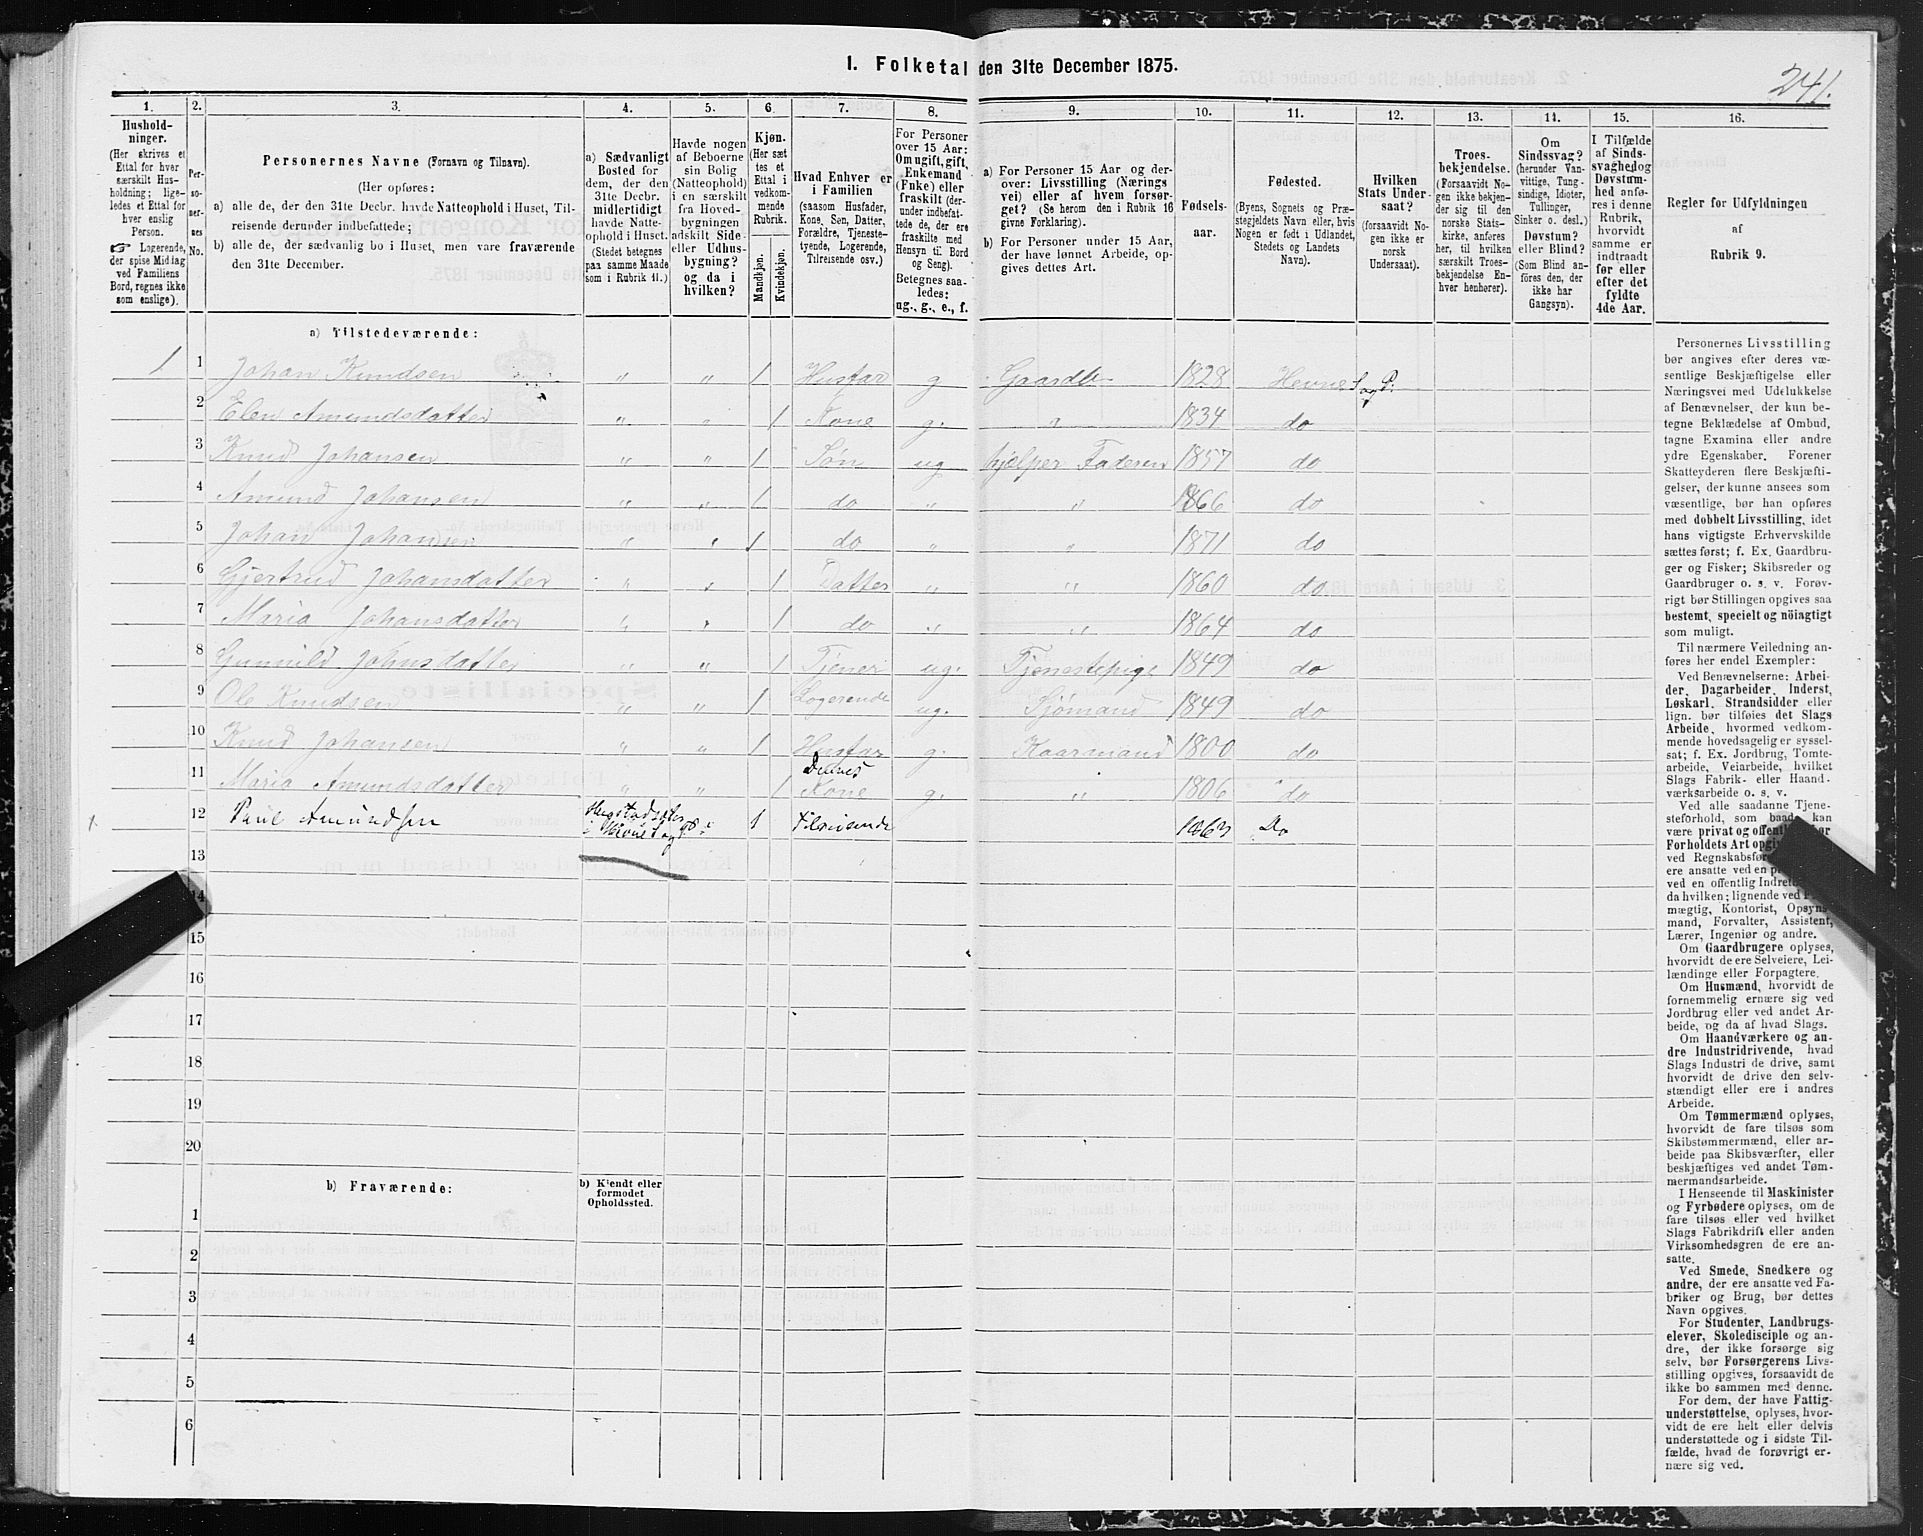 I. Folketal den 31te December 1875.
241.
1. 2. 3. 4. 5. 6. 7. 8. 9. 10. 11. 12. 13. 14. 15. 16.
Hushold-
ninger.
(Her skrives et
Ettal for hver
særskilt Hus-
holdning; lige-
ledes et Ettal for
hver enslig
Person.
☞ Logerende,
der spise Middag
ved Familiens
Bord, regnes ikke
som enslige).
Per-
so-
ner-
nes
No.
Personernes Navne (Fornavn og Tilnavn).
(Her opføres:
a) alle de, der den 31te Decbr. havde Natteophold i Huset, Til-
reisende derunder indbefattede;
b) alle de, der sædvanlig bo i Huset, men vare fraværende
den 31te December.
a) Sædvanligt
Bosted for
dem, der den
31te Decbr.
midlertidigt
havde Natte-
ophold i Huset.
(Stedet betegnes
paa samme Maade
som i Rubrik 11.)
Havde nogen
af Beboerne
sin Bolig
(Natteophold)
i en særskilt
fra Hoved-
bygningen
adskilt Side-
eller Udhus-
bygning?
og da i
hvilken?
Kjøn.
(Her sæt
tes et
Ettal i
vedkom-
mende
Rubrik.
Mandkjøn.
Kvindekjøn.
Hvad Enhver er
i Familien
(saasom Husfader,
Kone, Søn, Datter,
Forældre, Tjeneste-
tyende, Logerende,
Tilreisende osv.)
For Personer
over 15 Aar:
Om ugift, gift,
Enkemand
(Enke) eller
fraskilt (der-
under indbefat-
tede de, der ere
fraskilte med
Hensyn til Bord
og Seng).
Betegnes saa-
ledes:
ug., g., e., f.
a) For Personer 15 Aar og der-
over: Livsstilling (Nærings
vei) eller af hvem forsør-
get? (Se herom den i Rubrik 16
givne Forklaring).
b) For Personer under 15 Aar,
der have lønnet Arbeide, op-
gives dettes Art.
Fødsels-
aar.
Fødested.
(Byens, Sognets og Præ-
stegjeldets Navn eller, hvis
Nogen er født i Udlandet,
Stedets og Landets
Navn).
Hvilken
Stats Under-
saat?
(forsaavidt No-
gen ikke er
norsk
Undersaat).
Troes-
bekjendelse.
(Forsaavidt No-
gen ikke bekjen-
der sig til den
norske Stats-
kirke, anføres
her, til hvilken
særskilt Troes-
bekjendelse En-
hver henhører).
Om
Sindssvag?
(herunder Van-
vittige, Tung-
sindige, Idioter,
Tullinger,
Sinker o. desl.)
Døvstum?
eller Blind?
(Som Blind an-
føres den, der
ikke har
Gangsyn).
I Tilfælde
af Sinds-
svaghed og
Døvstum-
hed anfø-
res i denne
Rubrik,
hvorvidt
samme er
indtraadt
før eller
efter det
fyldte
4de Aar.
Regler for Udfyldningen
af
Rubrik 9.
a) Tilstedeværende:
1 1 Johan Knudsen " " 1 Husfar g Gaardb 1828 Hevne S og P.
2 Elen Amundsdatter " " 1 Kone g. " 1834 do
3 Knud Johansen " " 1 Søn ug hjælper Faderen 1857 do
4 Amund Johansen " " 1 do " " 1866 do
5 Johan Johansen " " 1 do " " 1871 do
6 Gjertrud Johansdatter " " 1 Datter " " 1860 do
7 Maria Johansdatter " " 1 do " " 1864 do
8 Gunnild Johnsdatter " " 1 Tjener ug. Tjenestepige 1849 do
9 Ole Knudsen " " 1 Logerende ug. Sjømand 1849 do
10 Knud Johansen " " 1 Husfar g. Kaarmand 1800 do
11 Maria Amundsdatter " " 1 Kone g. " 1806 do
1. 12 Paul Amundsen 1 Tilreisende Do
13
14
15
16
17
18
19
20
b) Fraværende:
b) Kjendt eller
formodet
Opholdssted.
1
2
3
4
5
6
Personernes Livsstilling
bør angives efter deres væ-
sentlige Beskjæftigelse eller
Næringsvei med Udelukkelse
af Benævnelser, der kun be-
tegne Beklædelse af Ombud,
tagne Examina eller andre
ydre Egenskaber. Forener
Skatteyderen flere Beskjæfti-
gelser, der kunne ansees som
væsentlige, bør han opføres
med dobbelt Livsstilling, idet
hans vigtigste Erhvervskilde
sættes først; f. Ex. Gaardbru-
ger og Fisker; Skibsreder og
Gaardbruger o. s. v. Forøv-
rigt bør Stillingen opgives saa
bestemt, specielt og nöiagtigt
som muligt.
Til nærmere Veiledning an-
føres her endel Exempler:
Ved Benævnelserne: Arbei-
der, Dagarbeider, Inderst,
Løskarl, Strandsidder eller
lign. bør tilføies det Slags
Arbeide, hvormed vedkom-
mende hovedsagelig er syssel-
sat; f. Ex. Jordbrug, Tomte-
arbeide, Veiarbeide, hvilket
Slags Fabrik- eller Haand-
værksarbeide o. s. v.
Ved alle saadanne Tjene-
steforhold, som baade kan
være privat og offentligt, bør
Forholdets Art opgives,
ved Regnskabsfør
ere ansatte ved en p
ved en offentlig Indret
da hvilken; lignende ved
mægtig, Kontorist, Opsyns-
mand, Forvalter, Assistent,
Lærer, Ingeniør og andre.
Om Gaardbrugere oplyses,
hvorvidt de ere Selveiere, Lei-
lændinge eller Forpagtere.
Om Husmænd, hvorvidt de
fornemmelig ernære sig ved
Jordbrug eller ved andet Ar-
beide, og da af hvad Slags.
Om Haandværkere og an-
dre Industridrivende, hvad
Slags Industri de drive, samt
hvorvidt de drive den selv-
stændigt eller ere i andres
Arbeide.
Om Tømmermænd oplyses,
hvorvidt de fare tilsøs som
Skibstømmermænd, eller ar-
beide paa Skibsværfter, eller
beskjæftiges ved andet Tøm-
mermandsarbeide.
I Henseende til Maskinister
og Fyrbødere oplyses, om de
fare tilsøs eller ved hvilket
Slags Fabrikdrift eller anden
Virksomhedsgren de ere an-
satte.
Ved Smede, Snedkere og
andre, der ere ansatte ved Fa-
briker og Brug, bør dettes
Navn opgives.
For Studenter, Landbrugs-
elever, Skoledisciple og an-
dre, der ikke forsørge sig
selv, bør Forsørgerens Livs-
stilling opgives, forsaavidt de
ikke bo sammen med denne.
For dem, der have Fattig-
understøttelse, oplyses, hvor-
vidt de ere helt eller delvis
understøttede og i sidste Til-
fælde, hvad de forøvrigt er-
nære sig ved.